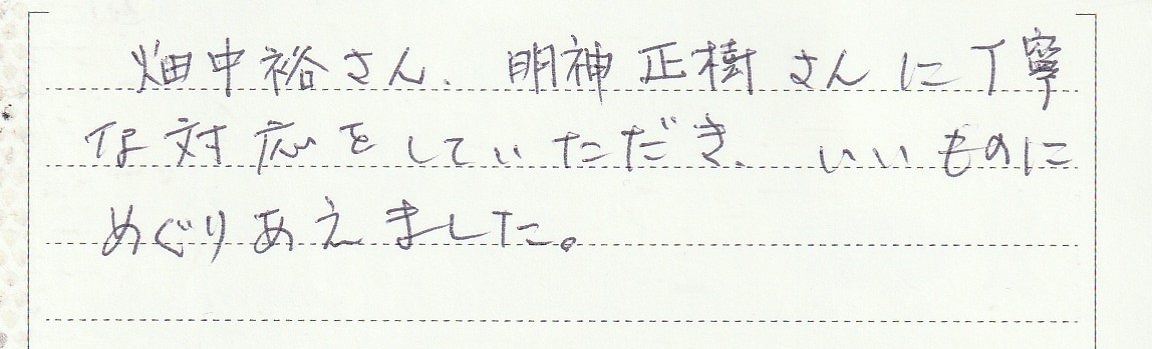 畑中裕さん、明神正樹さんに丁寧
な対応をしていただき、いいものに
めぐりあえました。